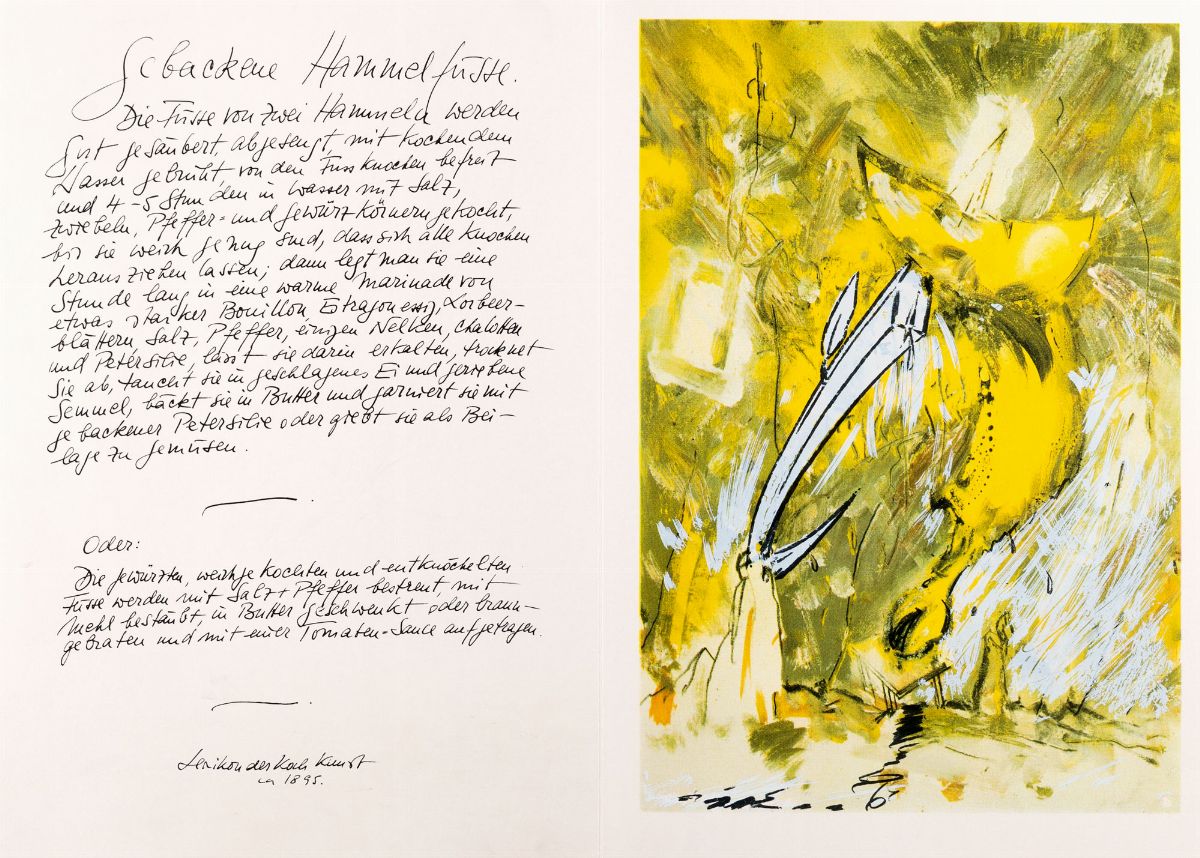 Gebackene Hammelfüsse.
Die Füsse von zwei Hammeln werden
gut gesäubert, abgesengt, mit kochendem
Wasser gebrüht, von den Fussknochen befreit
und 4-5 Stunden in Wasser mit Salz,
zwiebeln, Pfeffer= und gewürzkörnern gekocht,
bis sie weich genug sind, dass sich alle Knochen
herausziehen lassen; dann legt man sie eine
Stunde lang in eine warme Marinade von
etwas starker Bouillon Estragonessig, Lorbeer-
blättern, Salz, Pfeffer, einigen Nelken, chalotten
und Petersilie, lässt sie darin erkalten, trocknet
sie ab, taucht sie in geschlagenes Ei und geriebene
Semmel, bäckt sie in Butter und garniert sie mit
gebackener Petersilie oder giebt sie als Bei-
lage zu gemüsen.
Oder:
Die gewürzten, weichgekochten und entknöchelten
Füsse werden mit Salz + Pfeffer bestreut, mit
Mehl bestäubt, in Butter geschwenkt oder braun-
gebraten und mit einer Tomaten-Sauce aufgetragen.
Lexikon der Koch Kunst
ca 1895.